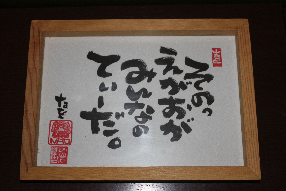 そのっ
えがおが
みんなの
てぃーだ。